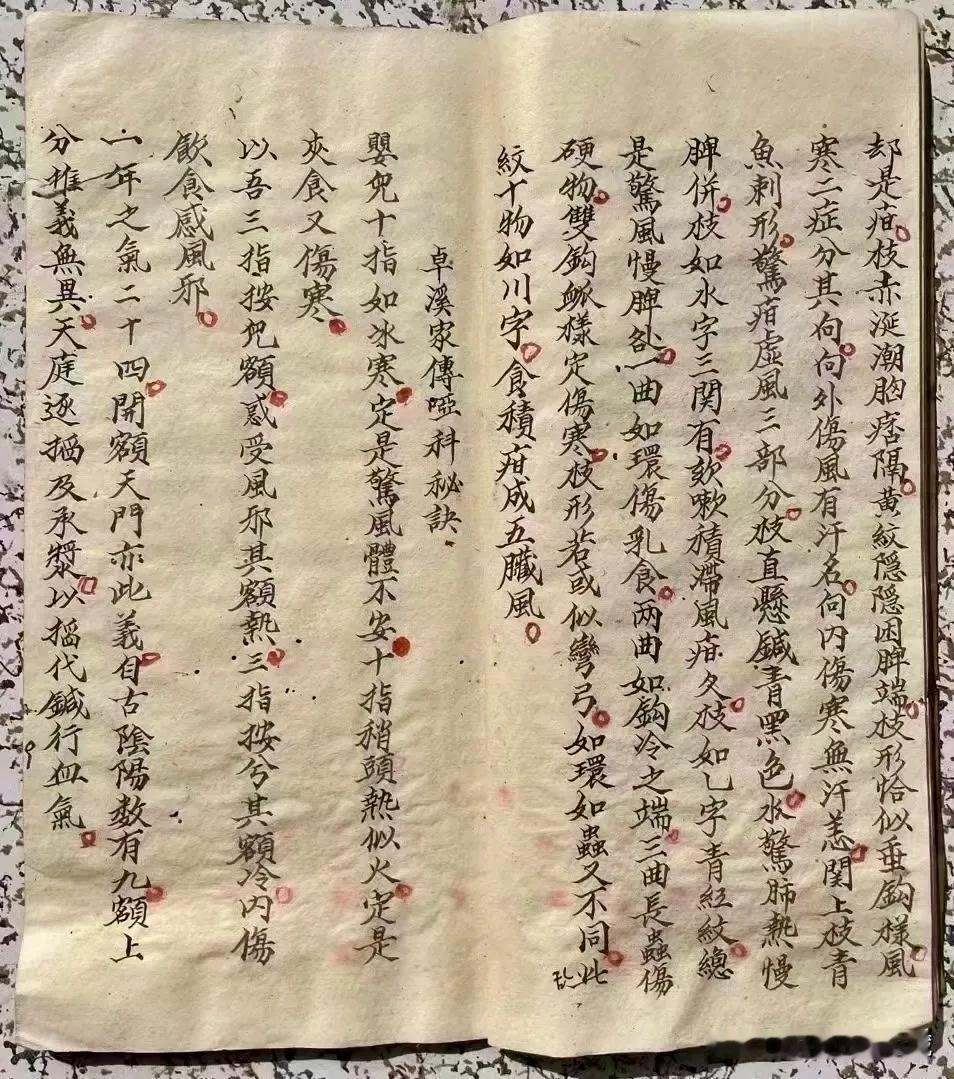 却是疳枝赤涎潮胸痞隔黄紋隱隱困脾端枝形恰似垂鈎樣風
寒二症分其向向外傷風有汗名向内傷寒無汗恙関上枝青
魚刺形驚疳虛風三部分枝直懸鍼青黑色水驚肺熱慢
脾併枝如水字三関有欬嗽積滯風疳久枝如乙字青紅紋總
是驚風慢脾一曲如環傷乳食两曲如鈎冷之端三曲長蟲傷
硬物雙鈎樣定傷寒枝形若或似彎弓如環如蟲又不同此
乱
紋十物如川字食積疳成五臟風
卓溪家傳啞科秘訣
嬰兒十指如冰寒定是驚風體不安十指稍頭熱似火定是
夾食又傷寒
以吾三指按兒額感受風邪其額熱三指按兮其額冷内傷
飲食感風邪
一年之氣二十四開額天門亦此義自古陰陽数有九額上
分推義無異天庭逐掐及承漿以掐代鍼行血氣